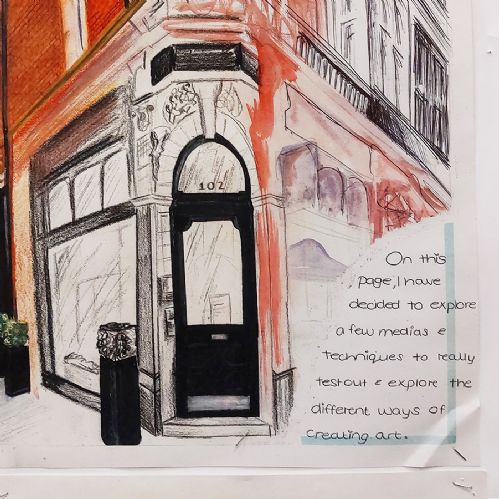 102
On this
page, I have
decided to explore
a few medias &
techniques to really
testout & explore the
different ways of
creating art.